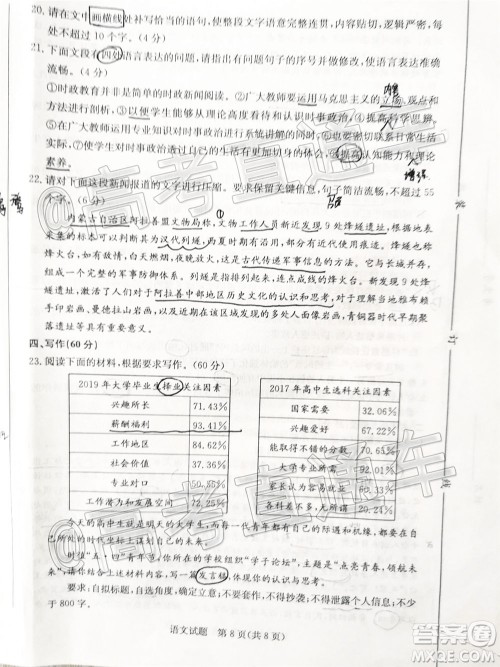 20. 请在文中画横线处补写恰当的语句，使整段文字语意完整连贯，内容贴切，逻辑严密，每
处不超过 10 个字。(4 分)
21. 下面文段有四处语言表达的问题，请指出有问题句子的序号并做修改，使语言表达准确
流畅。(4 分)
①时政教育并非是简单的时政新闻阅读。②广大教师要运用马克思主义的立场、观点和
方法进行剖析，③以便学生能够从理论高度认识时事政治，④提高科学思辨
⑤广大教师运用专业知识对时事政治进行系统讲解，⑥也需要密切联系日常生活
实际，⑦使其产生出更有切身的体会，⑧提高认知能力和理论
素养。
22. 请对下面这段新闻报道的文字进行压缩。要求保留关键信息，句子简洁流畅，不超过 55
个字。(6 分)
内蒙古自治区阿拉善盟文物局称，文物工作人员新近发现 9 处烽燧遗址，根据地表
采集的标本可以判断其为汉代列燧，西夏时期有沿用。烽燧是指
烽火台，如有敌情，白天燃烟，夜晚放火，这是古代传递军事信息的方法。它与长城并存，
是一个严密完整的军事防御体系。列燧是指排列起来的烽火台。新发现 9 处烽燧
遗址，激发了人们对于阿拉善中部地区历史文化的认识和思考，对于清晰了解当地雅布赖手
印岩画、曼德拉山岩画、
聚落遗址等大有裨益。
四、写作(60 分)
23. 阅读下面的材料，根据要求写作。(60 分)
2019 年大学毕业生择业关注因素
兴趣所长 71.43%
薪酬福利 93.41%
工作地区 62.84%
社会价值 37.36%
专业对口
工作潜力和发展空间 72.25%
2017 年高中生选科关注因素
国家需要 32.06%
兴趣爱好 67.22%
能取得不错的分数 70.65%
大学专业所需
就业
各科差异不大 20.24%
今天的高中生就是明天的大学生，而每一代青年都有自己的际遇和机缘，都要在自己
所处的时代条件下谋划自己的人生。
时值“五·四”青年节，你所在的学校组织“学子论坛”，主题是“点亮青春，情系家
国”。请结合上述材料，写一篇发言稿，体现你的认识与思考。
要求：自拟标题，自选角度，确定立意；不要套作，不得抄袭；不得泄露个人信息；不少
于 800 字。
语文试题 第 8 页(共 8 页)